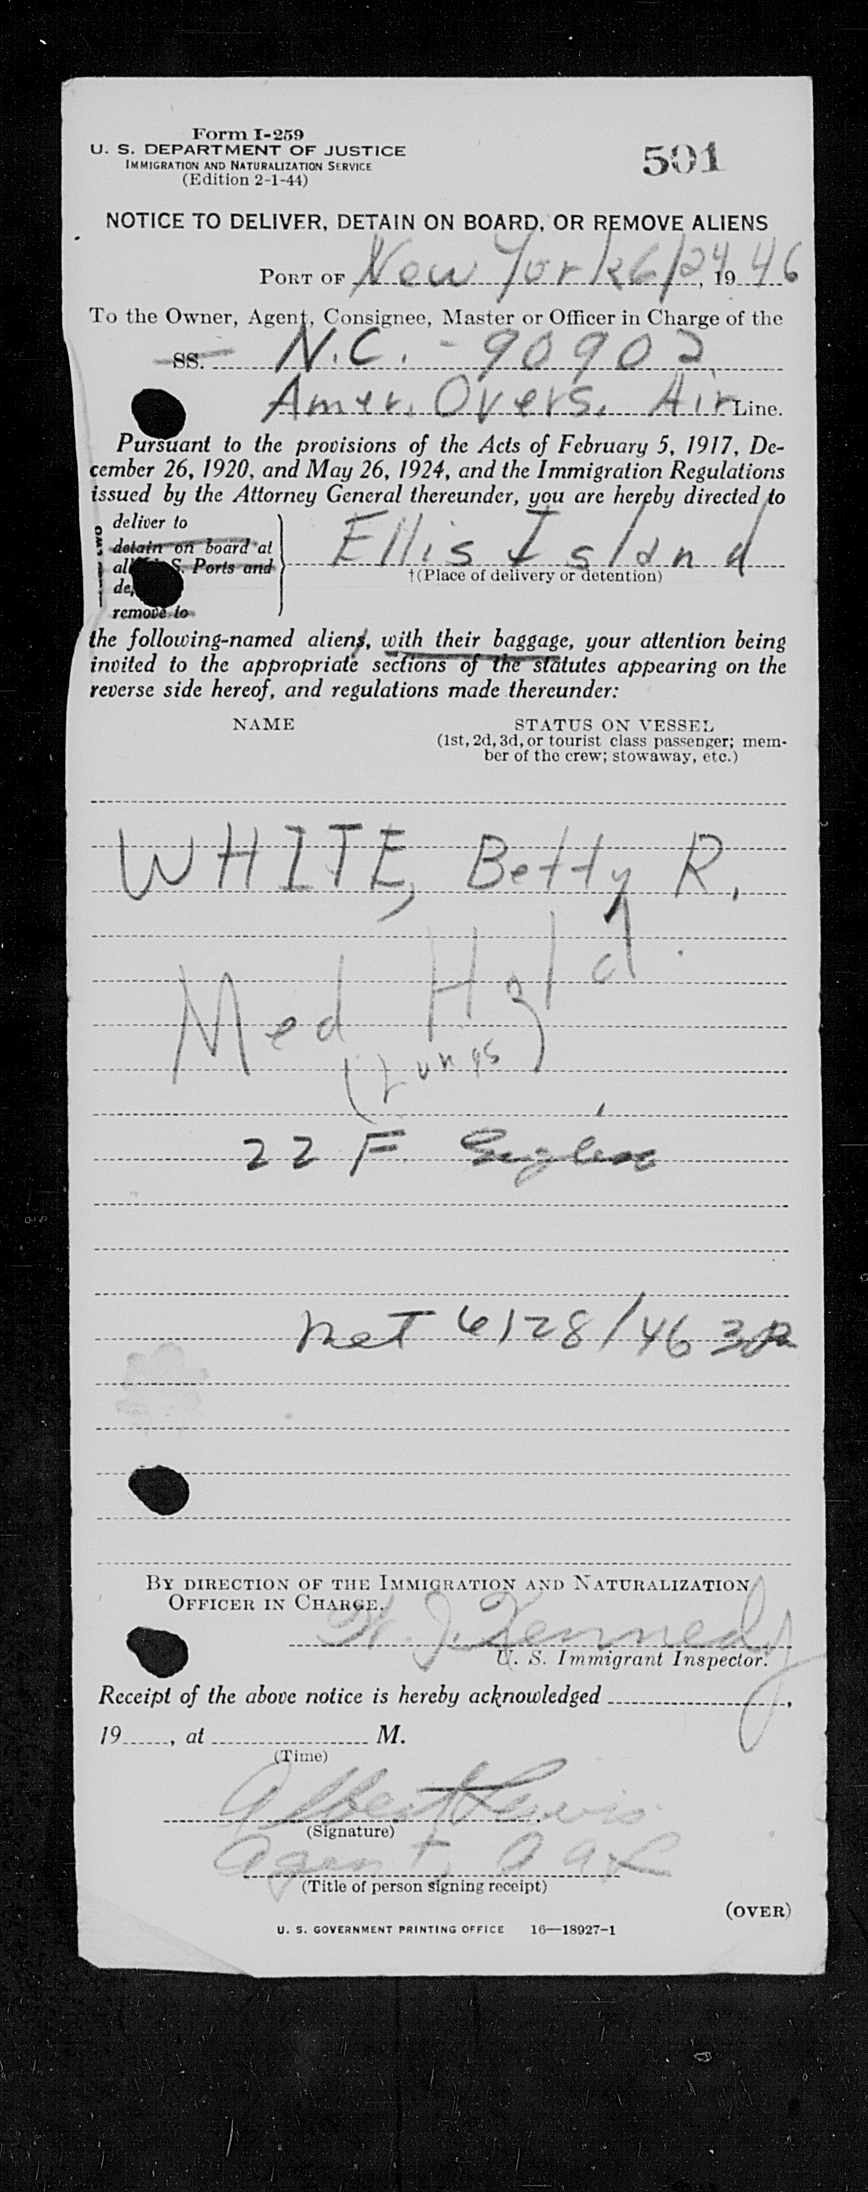 Form I-259
U. S. DEPARTMENT OF JUSTICE
IMMIGRATION AND NATURALIZATION SERVICE
(Edition 2-1-44)
501
NOTICE TO DELIVER, DETAIN ON BOARD, OR REMOVE ALIENS
PORT OF New York 6/24, 19 46
To the Owner, Agent, Consignee, Master or Officer in Charge of the
SS. N.C. - 90902
Amer. Overs. Air Line.
Pursuant to the provisions of the Acts of February 5, 1917, De-
cember 26, 1920, and May 26, 1924, and the Immigration Regulations
issued by the Attorney General thereunder, you are hereby directed to
deliver to
detain on board at
all U. S. Ports and
remove to
Ellis Island
†(Place of delivery or detention)
the following-named aliens, with their baggage, your attention being
invited to the appropriate sections of the statutes appearing on the
reverse side hereof, and regulations made thereunder:
NAME STATUS ON VESSEL
(1st, 2d, 3d, or tourist class passenger; mem-
ber of the crew; stowaway, etc.)
WHITE, Betty R.
Med Hold
(Lungs)
22 F English
6/28/46
BY DIRECTION OF THE IMMIGRATION AND NATURALIZATION
OFFICER IN CHARGE.
W. J. Kennedy
U. S. Immigrant Inspector.
Receipt of the above notice is hereby acknowledged ,
19 , at M.
(Time)
Albert Lewis
(Signature)
Agent, OAL
(Title of person signing receipt)
(OVER)
U. S. GOVERNMENT PRINTING OFFICE 16—18927-1